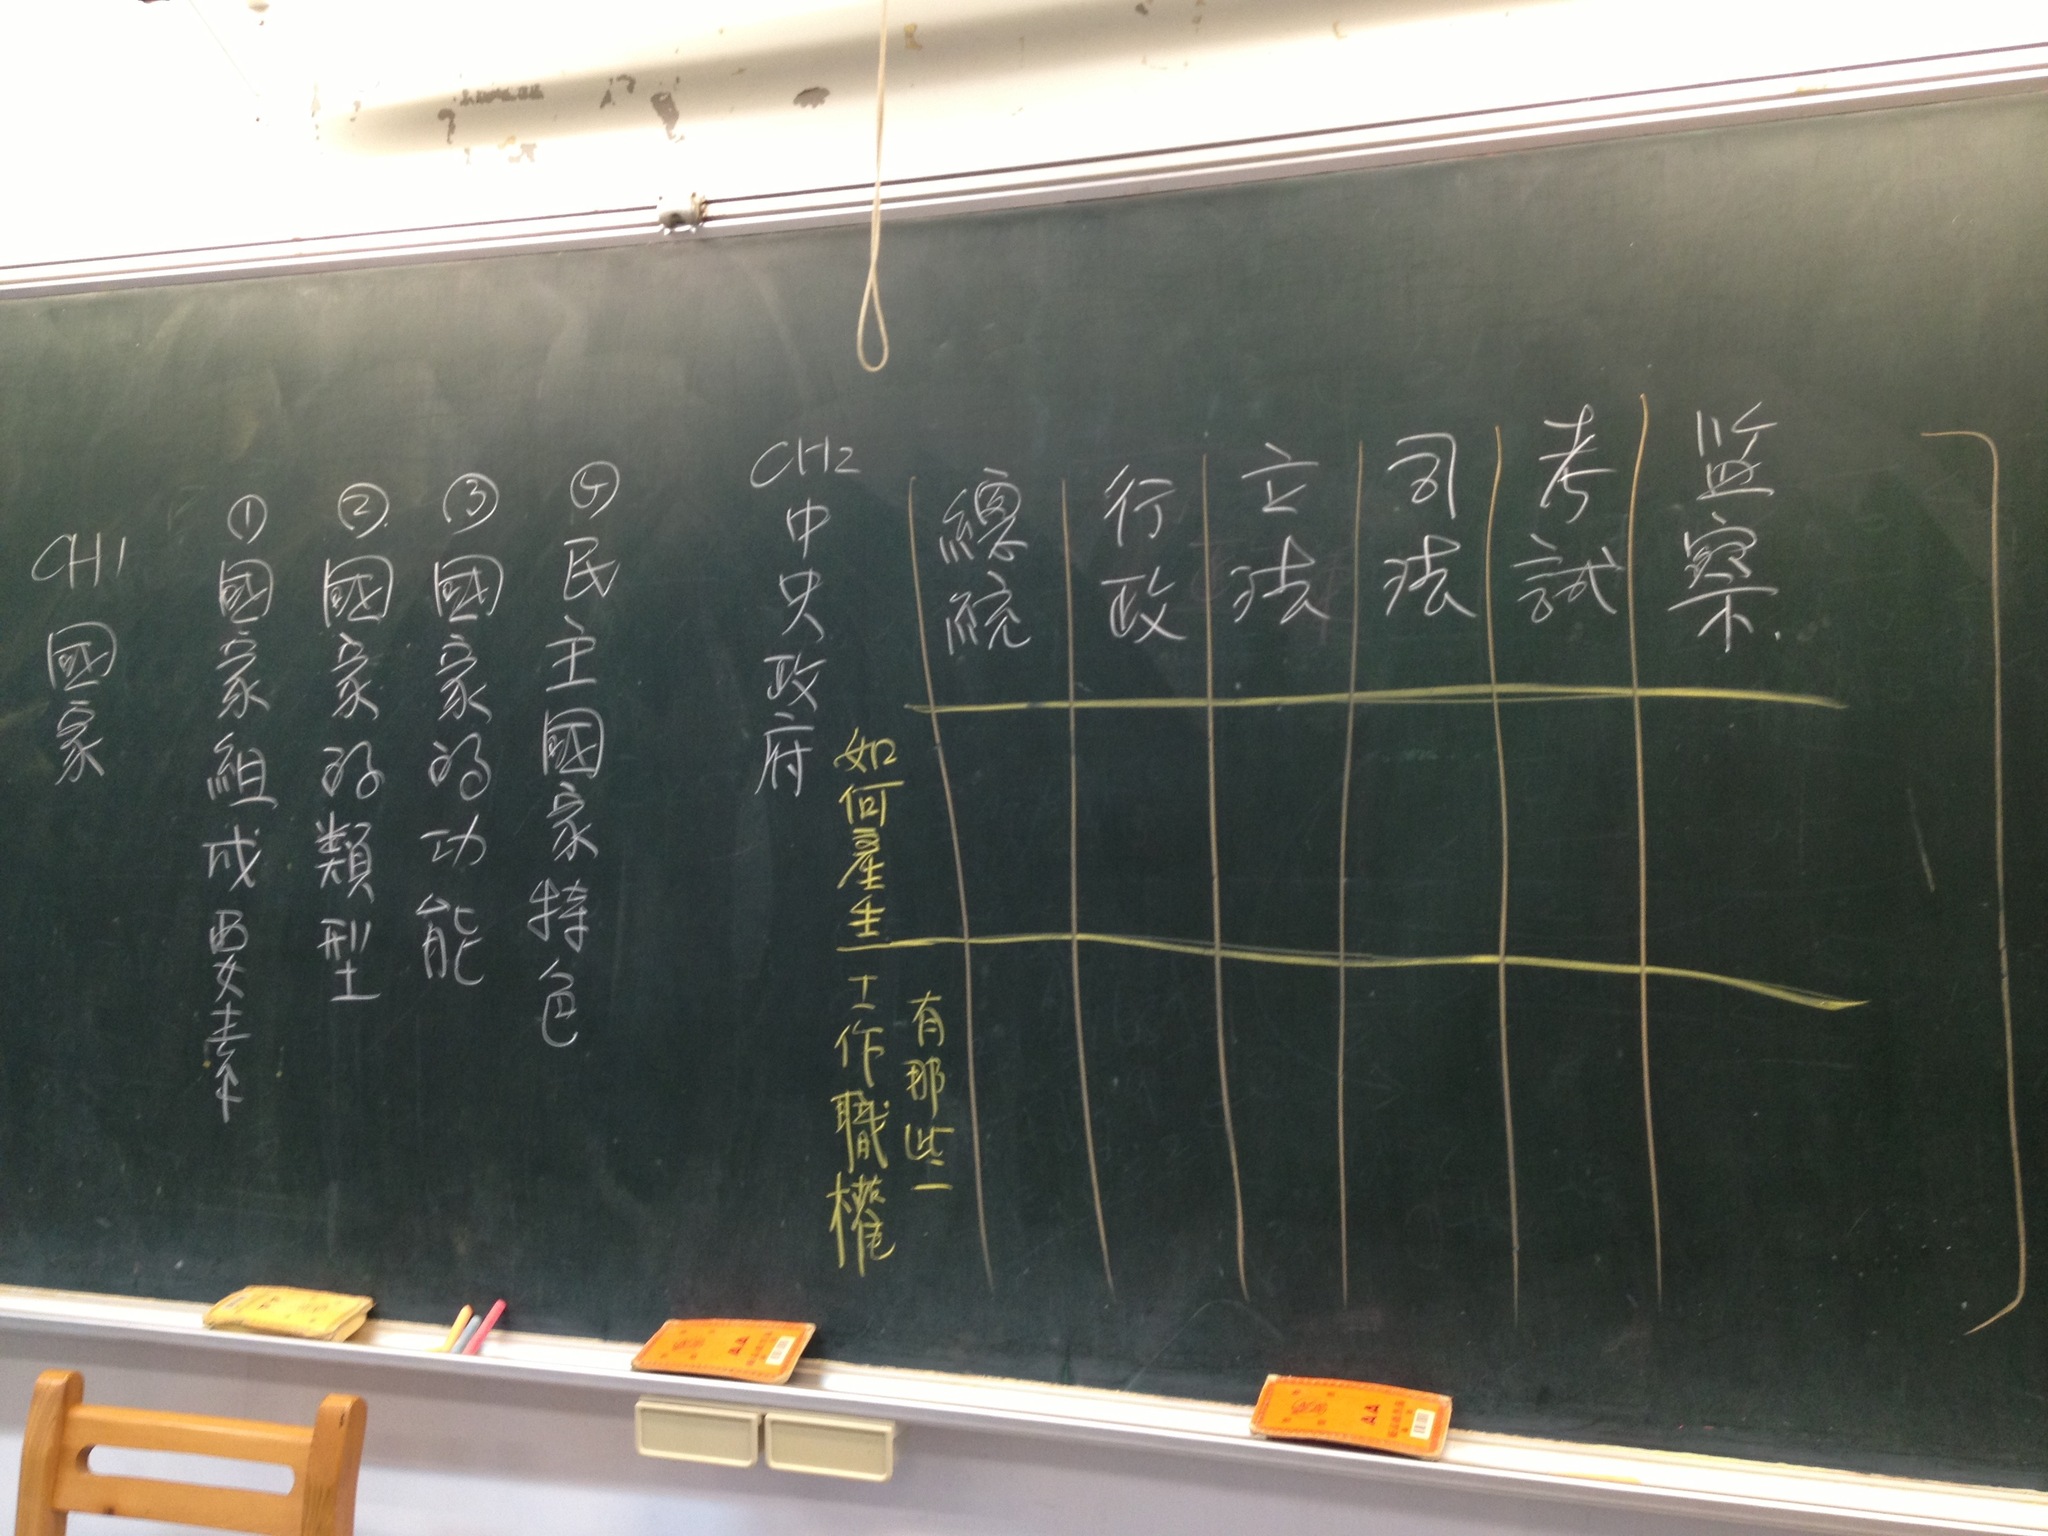 CH1 國家
①國家組成要素
②國家的類型
③國家的功能
④民主國家特色
CH2 中央政府
總統
行政
立法
司法
考試
监察
如何產生
工作職權
有那些
AA
AA